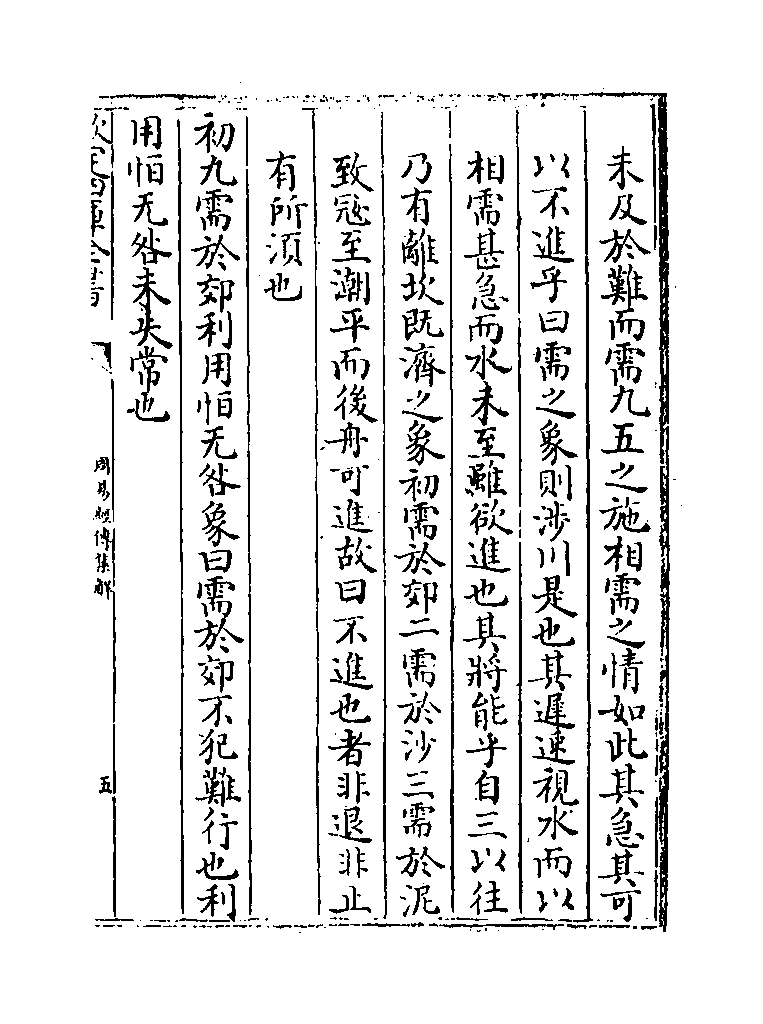 未及於難而需九五之施相需之情如此其急其可
以不進乎曰需之象則涉川是也其遲速視水而以
相需甚急而水未至雖欲進也其將能乎自三以往
乃有離坎既濟之象初需於郊二需於沙三需於泥
致寇至潮平而後舟可進故曰不進也者非退非止
有所須也
初九需於郊利用恒无咎象曰需於郊不犯難行也利
用恒无咎未失常也
欽定四庫全書
周易經傳集解
五